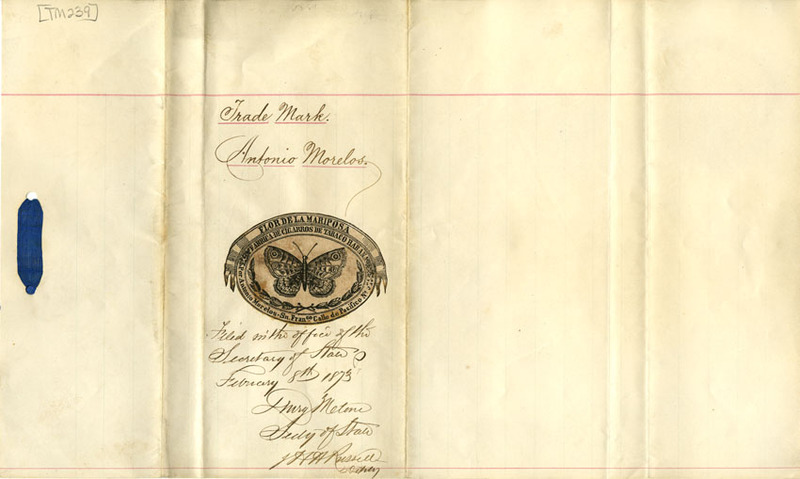 [TM239]
Trade Mark.
Antonio Morelos.
FLOR DE LA MARIPOSA
FABRICA DE CIGARROS DE TABACO
Antonio Morelos. Sn. Franco Calle de Pacifico No
Filed in the office of the
Secretary of State
February 8th 1873
Drury Melone
Secty of State
Russell